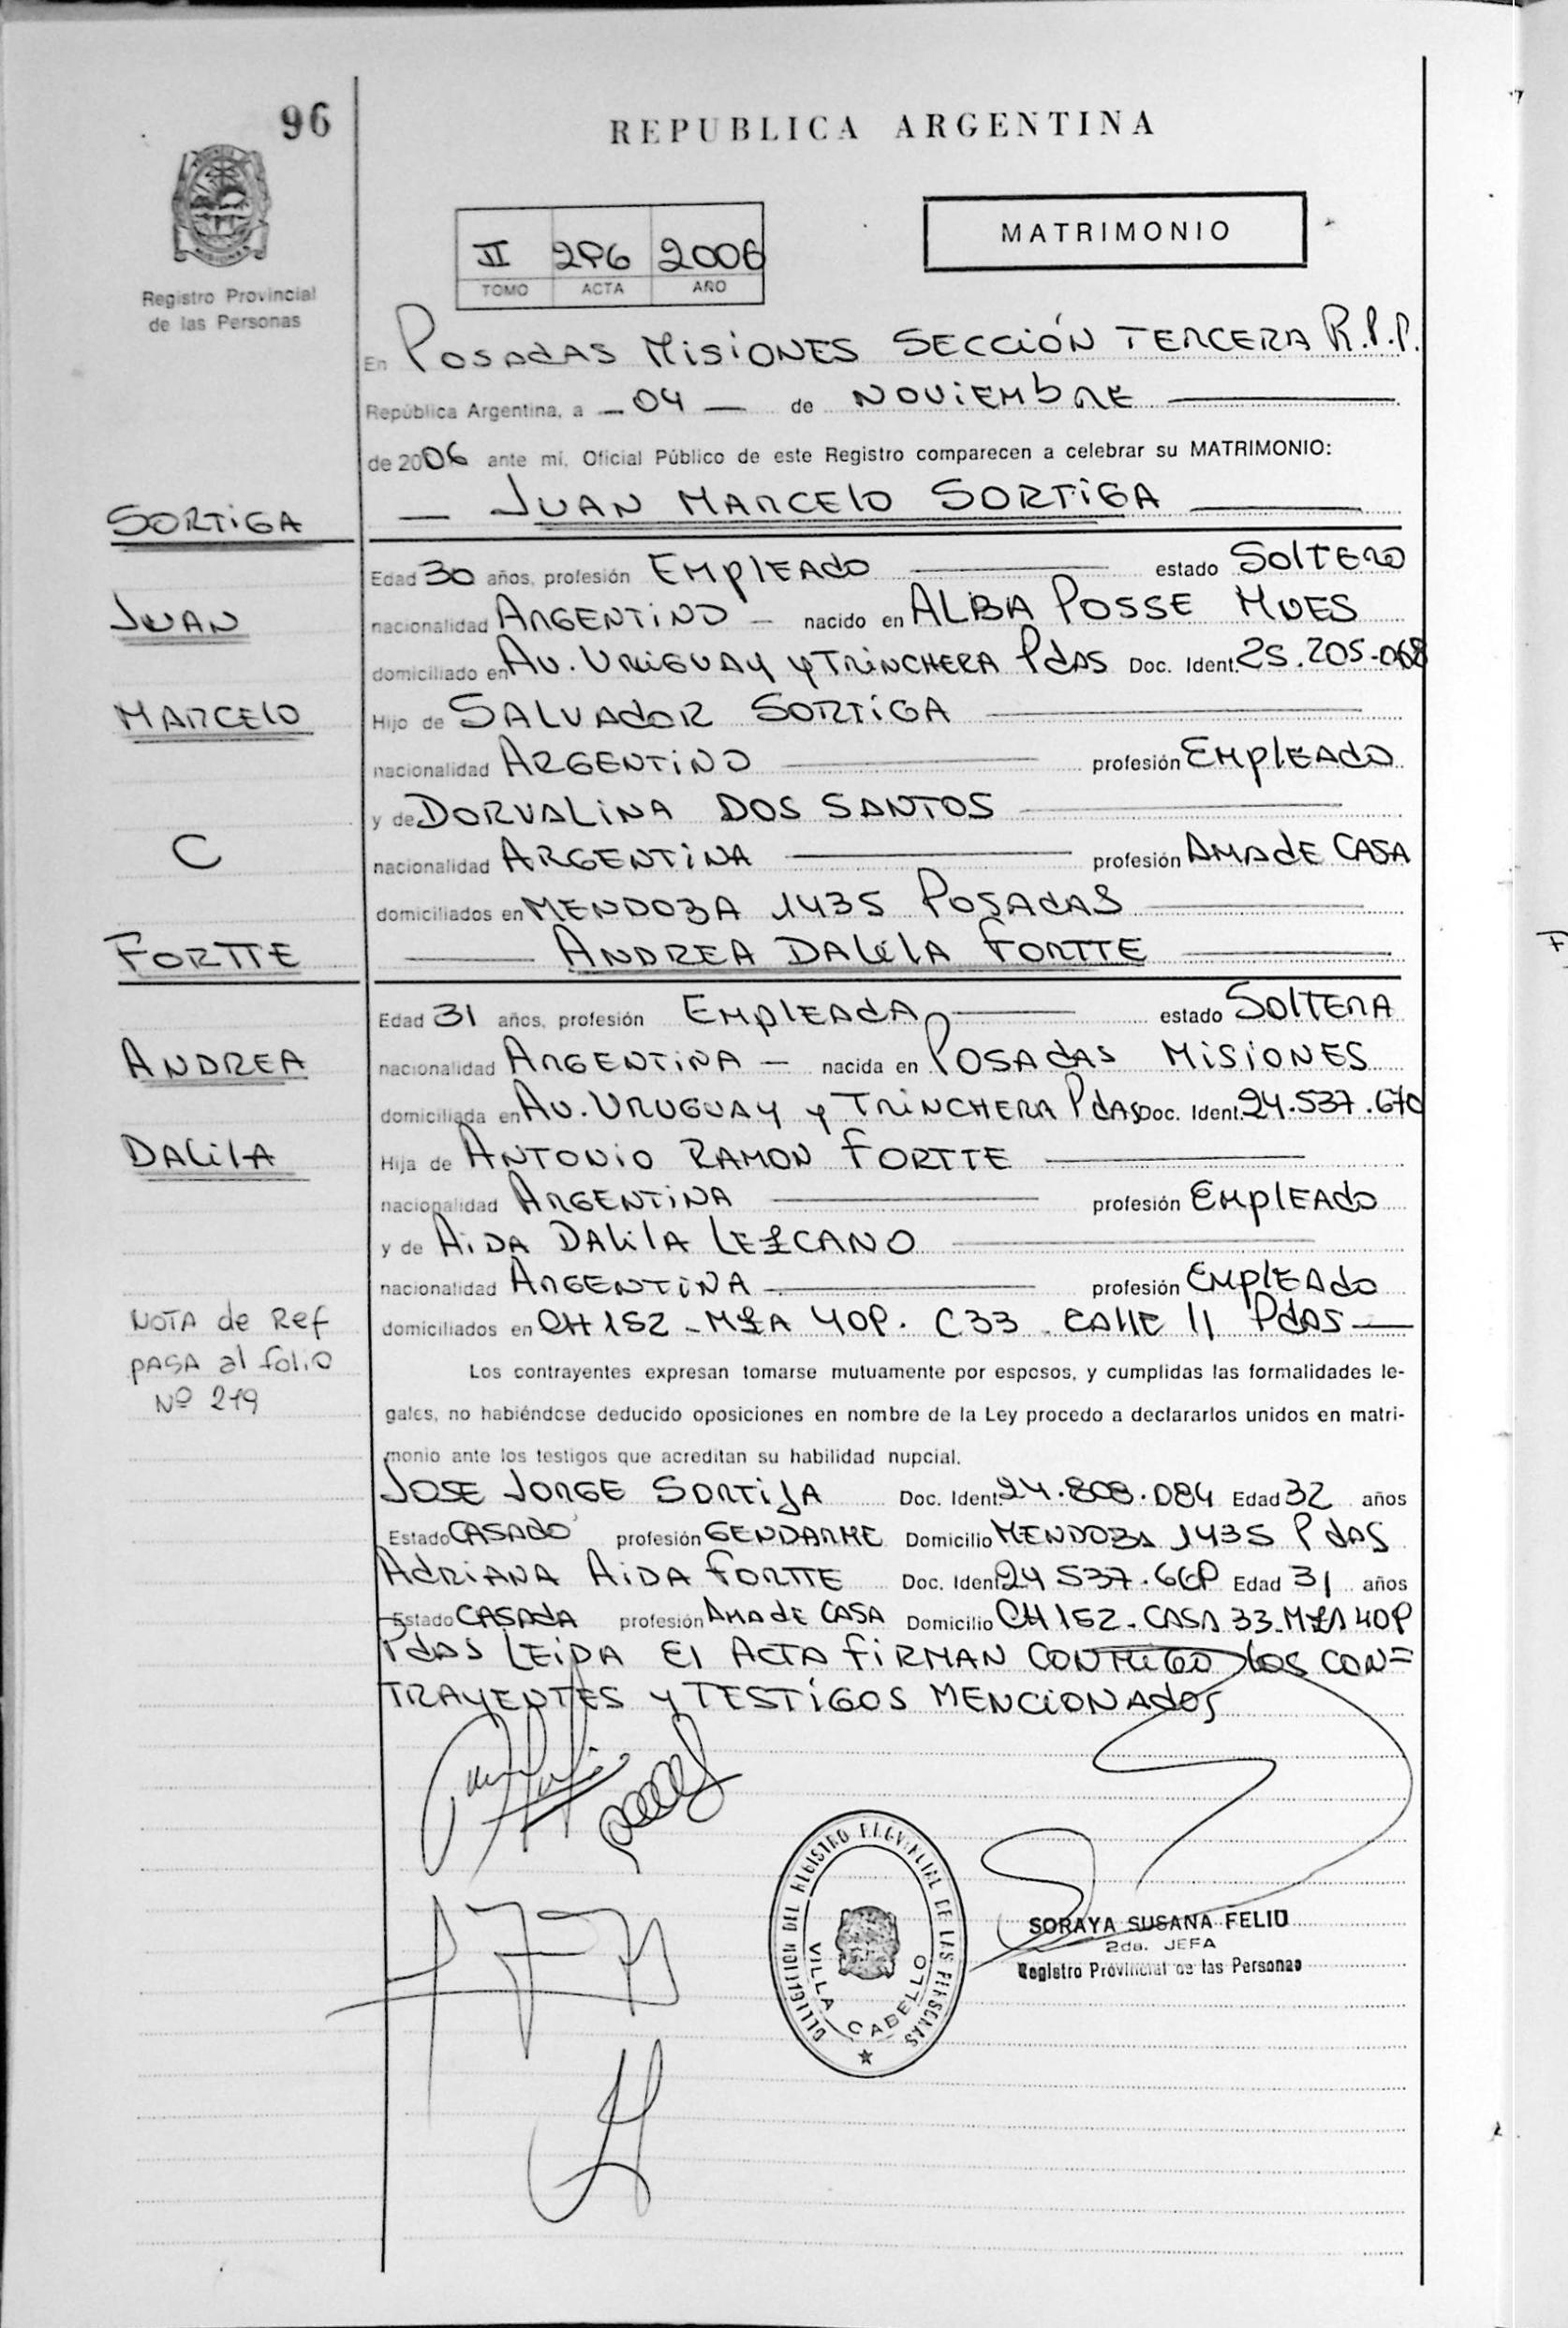 96
REPUBLICA ARGENTINA
MATRIMONIO
II 296 2006
TOMO ACTA AÑO
Registro Provincial
de las Personas
En POSADAS MISIONES SECCIÓN TERCERA R.P.P.
República Argentina, a - 04 - de NOVIEMBRE
de 2006 ante mí, Oficial Público de este Registro comparecen a celebrar su MATRIMONIO:
JUAN MARCELO SORTIGA
SORTIGA
Edad 30 años, profesión EMPLEADO estado SOLTERO
JUAN
nacionalidad ARGENTINO - nacido en ALBA POSSE MNES
domiciliado en AV. URUGUAY y TRINCHERA PdAS Doc. Ident. 25.205.068
MARCELO
Hijo de SALVADOR SORTIGA
nacionalidad ARGENTINO profesión EMPLEADO
y de DORVALINA DOS SANTOS
C
nacionalidad ARGENTINA profesión AMA dE CASA
domiciliados en MENDOZA 1435 POSADAS
FORTTE
ANDREA DALILA FORTTE
Edad 31 años, profesión EMPLEADA estado SOLTERA
ANDREA
nacionalidad ARGENTINA - nacida en POSADAS MISIONES
domiciliada en AV. URUGUAY y TRINCHERA PdAS Doc. Ident. 24.537.670
DALILA
Hija de ANTONIO RAMON FORTTE
nacionalidad ARGENTINA profesión EMPLEADO
y de AIDA DALILA LEZCANO
nacionalidad ARGENTINA profesión EMPLEADO
NOTA de Ref
domiciliados en CH 152 - MZA 40P. C33 CALLE 11 PdAS
PASA al folio
Nº 219
Los contrayentes expresan tomarse mutuamente por esposos, y cumplidas las formalidades le-
gales, no habiéndose deducido oposiciones en nombre de la Ley procedo a declararlos unidos en matri-
monio ante los testigos que acreditan su habilidad nupcial.
JOSE JORGE SORTIJA Doc. Ident. 24.808.084 Edad 32 años
Estado CASADO profesión GENDARME Domicilio MENDOZA 1435 PdAS
ADRIANA AIDA FORTTE Doc. Ident. 24.537.669 Edad 31 años
Estado CASADA profesión AMA dE CASA Domicilio CH 152 - CASA 33 - MZA 40P
PdAS LEIDA El ACTA FIRMAN CONMIGO LOS CON=
TRAYENTES Y TESTIGOS MENCIONADOS
DELEGACION DEL REGISTRO PROVINCIAL DE LAS PERSONAS
VILLA CABELLO
SORAYA SUSANA FELIU
2da. JEFA
Registro Provincial de las Personas